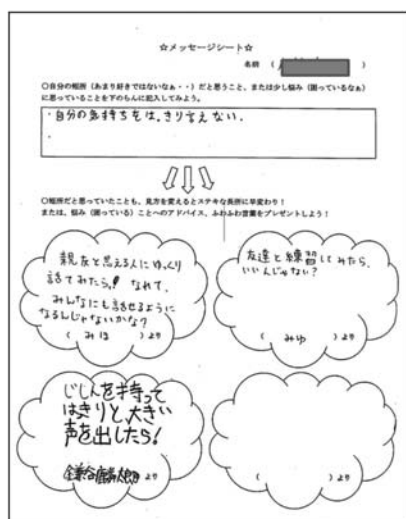 ☆メッセージシート☆
名前 (
○自分の短所(あまり好きではないなぁ・・)だと思うこと、または少し悩み(困っているなぁ)
に思っていることを下のらんに記入してみよう。
・自分の気持ちをはっきり言えない。
・
○短所だと思っていたことも、見方を変えるとステキな長所に早変わり!
または、悩み(困っている)ことへのアドバイス、ふわふわ言葉をプレゼントしよう!
親友と思える人にゆっくり
話てみたら!なれて、
みんなにも話せるように
なるんじゃないかな?
( みほ )より
友達と練習してみたら、
いいんじゃない?
( みゆ )より
じしんを持って
はきりと、大きい
声を出したら!
より
( )より